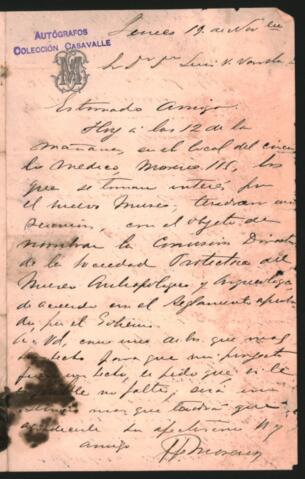 AUTÓGRAFOS
COLECCIÓN CASAVALLE
Jueves 19 de Nbre
Sr Dr Dn Luis V. Varela
Estimado amigo
Hoy a las 12 de la
mañana, en el local del circu
lo medico Moreno 115, los
que se toman interés por
el nuevo Museo, tendran una
reunion, con el objeto de
nombrar la Comision Direct
de la Sociedad Protectora del
Museo Antropológico y Arqueológico
de acuerdo en el Reglamento aproba
do, por el Gobierno.
A Vd, como uno de los que mas
hecho para que mi proyecto
le pido que si le
no falte, será un
mas que tendrá que
agradecerle su afectísimo S y
amigo
FPMoreno